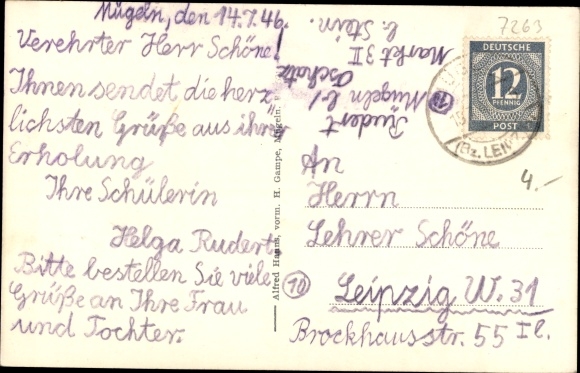 Mügeln, den 14.7.46.
Verehrter Herr Schöne!
Ihnen sendet die herz
lichsten Grüße aus ihrer
Erholung
Ihre Schülerin
Helga Rudert.
Bitte bestellen Sie viele
Grüße an Ihre Frau
und Tochter.
Rudert
Mügeln b/
Oschatz
Markt 3 II
b. Stein.
10
Alfred vorm. H. Gampe, Mügeln.
7263
DEUTSCHE
12
PFENNIG
POST
(Bz. LEIPZ
4.-
An
Herrn
Lehrer Schöne
10
Leipzig W. 31
Brockhausstr. 55 I l.